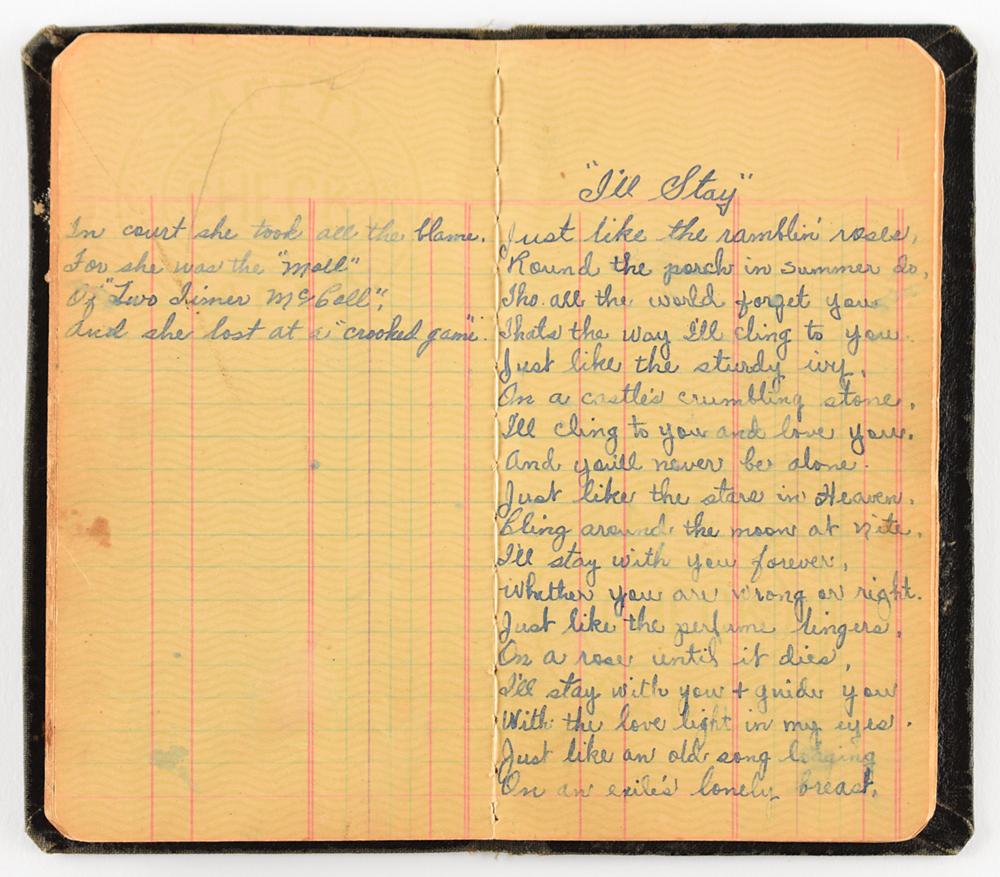 SAFETY
CHECK
In court she took all the blame.
For she was the "Moll"
Of "Two Timer McCall",
And she lost at a "crooked game".
"I'll Stay"
Just like the ramblin' roses,
Round the porch in summer do,
Tho. all the world forget you
Thats the way I'll cling to you.
Just like the sturdy ivy,
On a castle's crumbling stone,
I'll cling to you and love you.
And you'll never be alone.
Just like the stars in Heaven.
Cling around the moon at nite.
I'll stay with you forever,
Whether you are wrong or right.
Just like the perfume lingers,
On a rose until it dies,
I'll stay with you + guide you
With the love light in my eyes.
Just like an old song
On an exile's lonely breast,